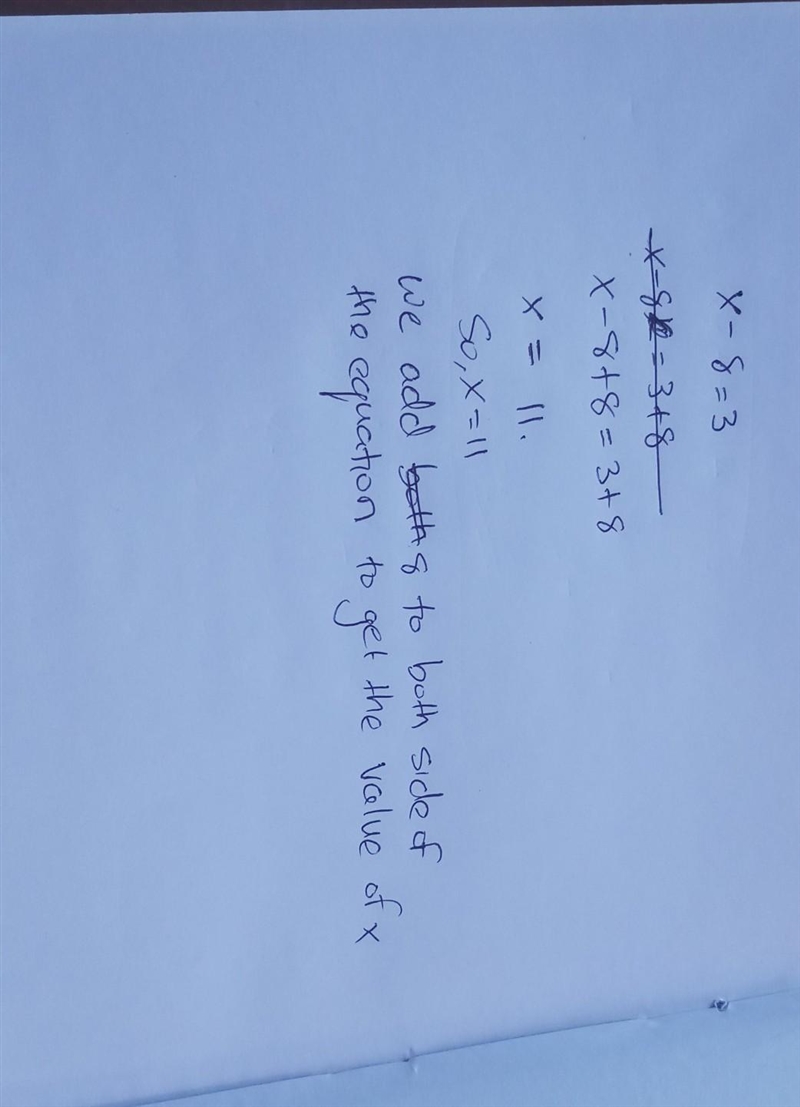 x - 8 = 3
x - 8 + 8 = 3 + 8
x = 11.
So, x = 11
We add 8 to both side of
the equation to get the value of x